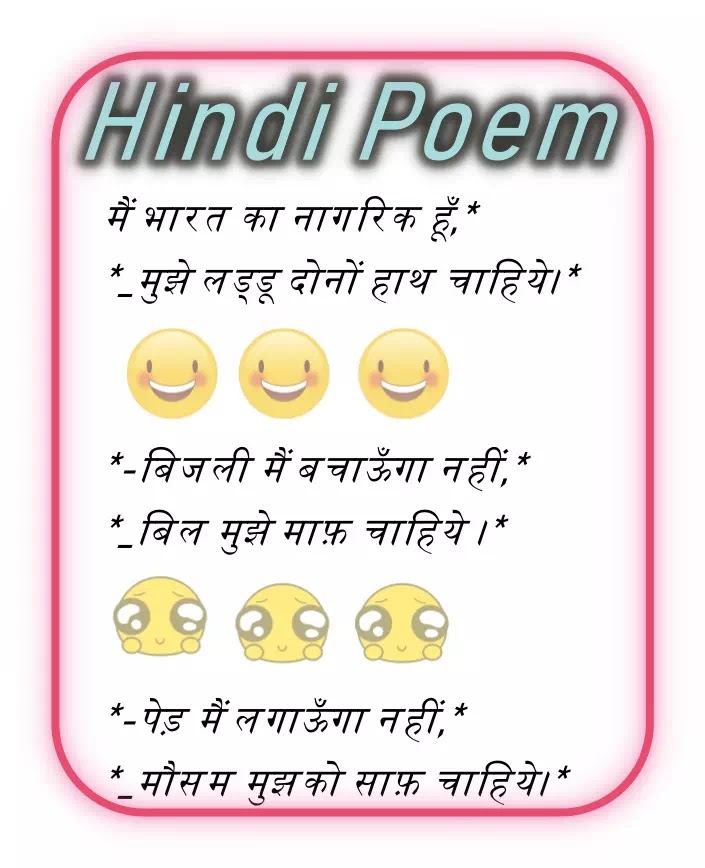 Hindi Poem
मैं भारत का नागरिक हूँ,*
*_मुझे लड्डू दोनों हाथ चाहिये।*
*-बिजली मैं बचाऊँगा नहीं,*
*_बिल मुझे माफ़ चाहिये ।*
*-पेड़ मैं लगाऊँगा नहीं,*
*_मौसम मुझको साफ़ चाहिये।*